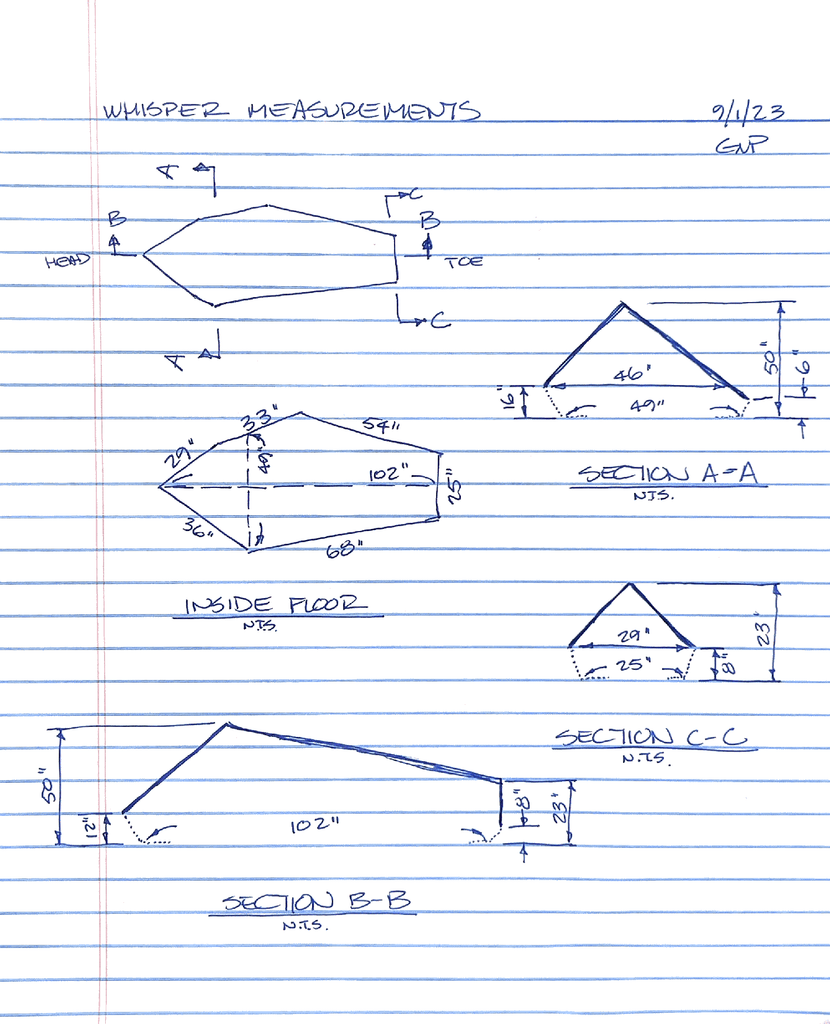 WHISPER MEASUREMENTS 9/1/23
GNP
A
C
B B
HEAD TOE
C
A
50"
6"
46"
16"
49"
SECTION A-A
N.T.S.
33"
54"
29"
49"
102"
25"
36"
68"
INSIDE FLOOR
N.T.S.
23"
29"
8"
25"
SECTION C-C
N.T.S.
50"
12"
102"
8"
23"
SECTION B-B
N.T.S.